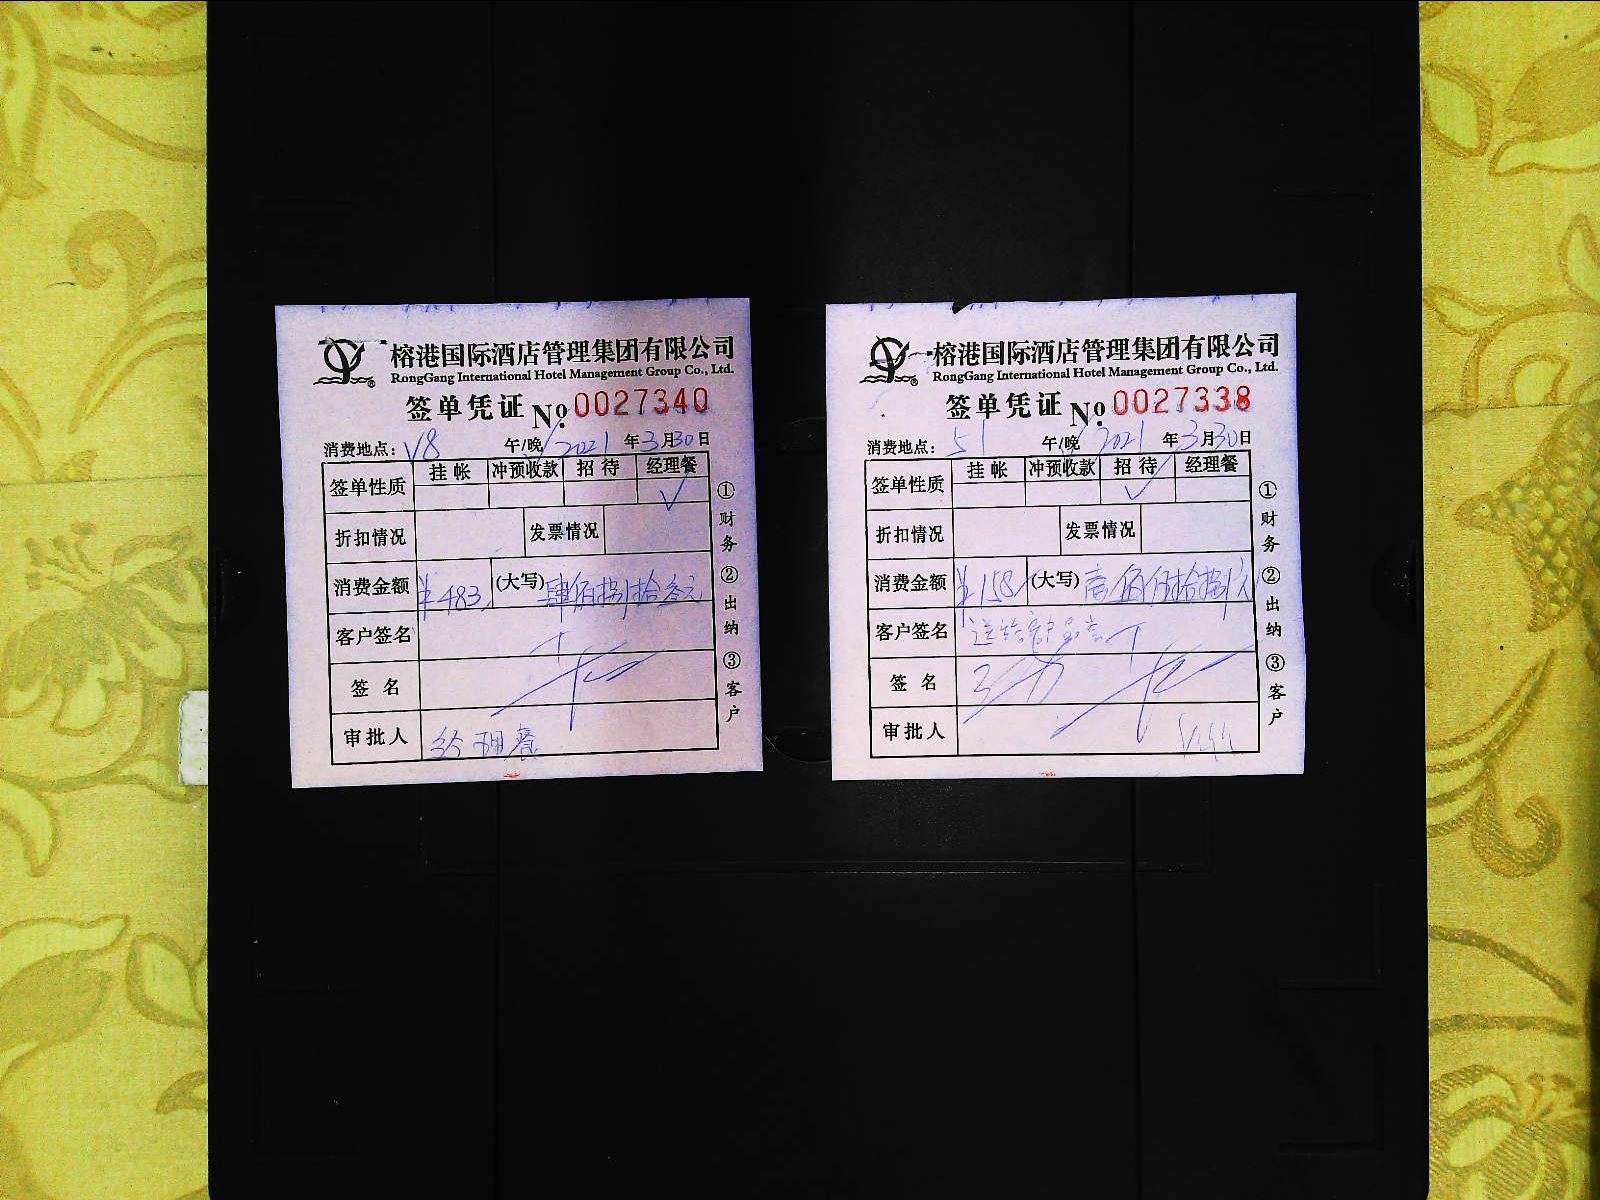 榕港国际酒店管理集团有限公司
RongGang International Hotel Management Group Co., Ltd.
签单凭证 No. 0027340
消费地点: V8 午/晚 2021 年 3 月 30 日
签单性质 挂帐 冲预收款 招待 经理餐
✓
折扣情况 发票情况
消费金额 ¥483 (大写) 肆佰捌拾叁元
客户签名
签名
审批人 经理餐
①财务 ②出纳 ③客户
榕港国际酒店管理集团有限公司
RongGang International Hotel Management Group Co., Ltd.
签单凭证 No. 0027338
消费地点: 51 午/晚 2021 年 3 月 30 日
签单性质 挂帐 冲预收款 招待 经理餐
✓
折扣情况 发票情况
消费金额 ¥158 (大写) 壹佰伍拾捌元
客户签名 送给客户
签名
审批人
①财务 ②出纳 ③客户